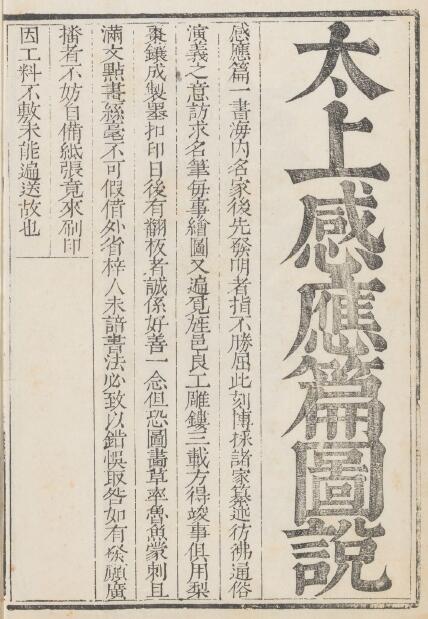 太上感應篇圖說
感應篇一書海內名家後先發明者指不勝屈此刻博採諸家纂述彷彿通俗
演義之意訪求名筆每事繪圖又遍覓旌邑良工雕鏤三載方得竣事俱用梨
棗鑲成製墨扣印日後有翻板者誠係好善一念但恐圖畫草率魯魚蒙刺且
滿文點畫絲毫不可假借外省梓人未諳書法必致以錯悞取咎如有發願廣
播者不妨自備紙張竟來刷印
因工料不敷未能遍送故也